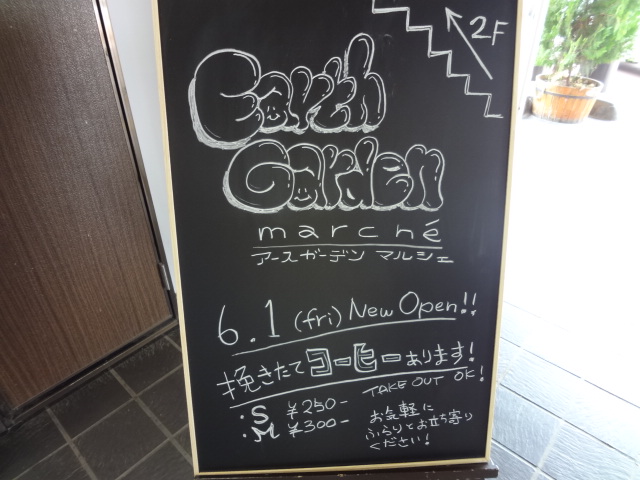 2F
Earth
Garden
marché
アースガーデン マルシェ
6.1 (fri) New Open!!
挽きたてコーヒーあります!
TAKE OUT OK!
・S ¥250-
・M ¥300-
お気軽に
ふらりとお立ち寄り
ください!